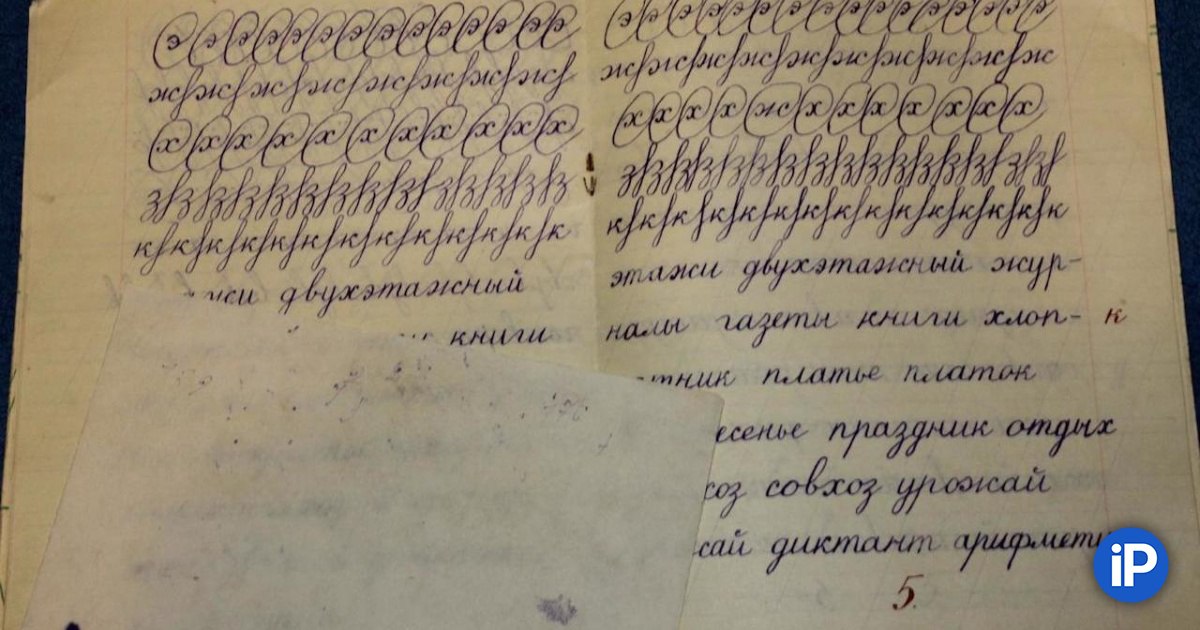 э э э э э э э э э э э э э
ж ж ж ж ж ж ж ж
х х х х х х х х х х х
з з з з з з з з з з з з
к к к к к к к к к к к к
двухэтажный
книги
э э э э э э э э э э э э э э
ж ж ж ж ж ж ж ж ж ж
х х х х ж х х х х х х х
з з з з з з з з з з з з з з
к к к к к к к к к к к к к к
этажи двухэтажный жур-
налы газеты книги хлоп- к
тник платье платок
есенье праздник отдых
оз совхоз урожай
сай диктант арифмети
5.
iP